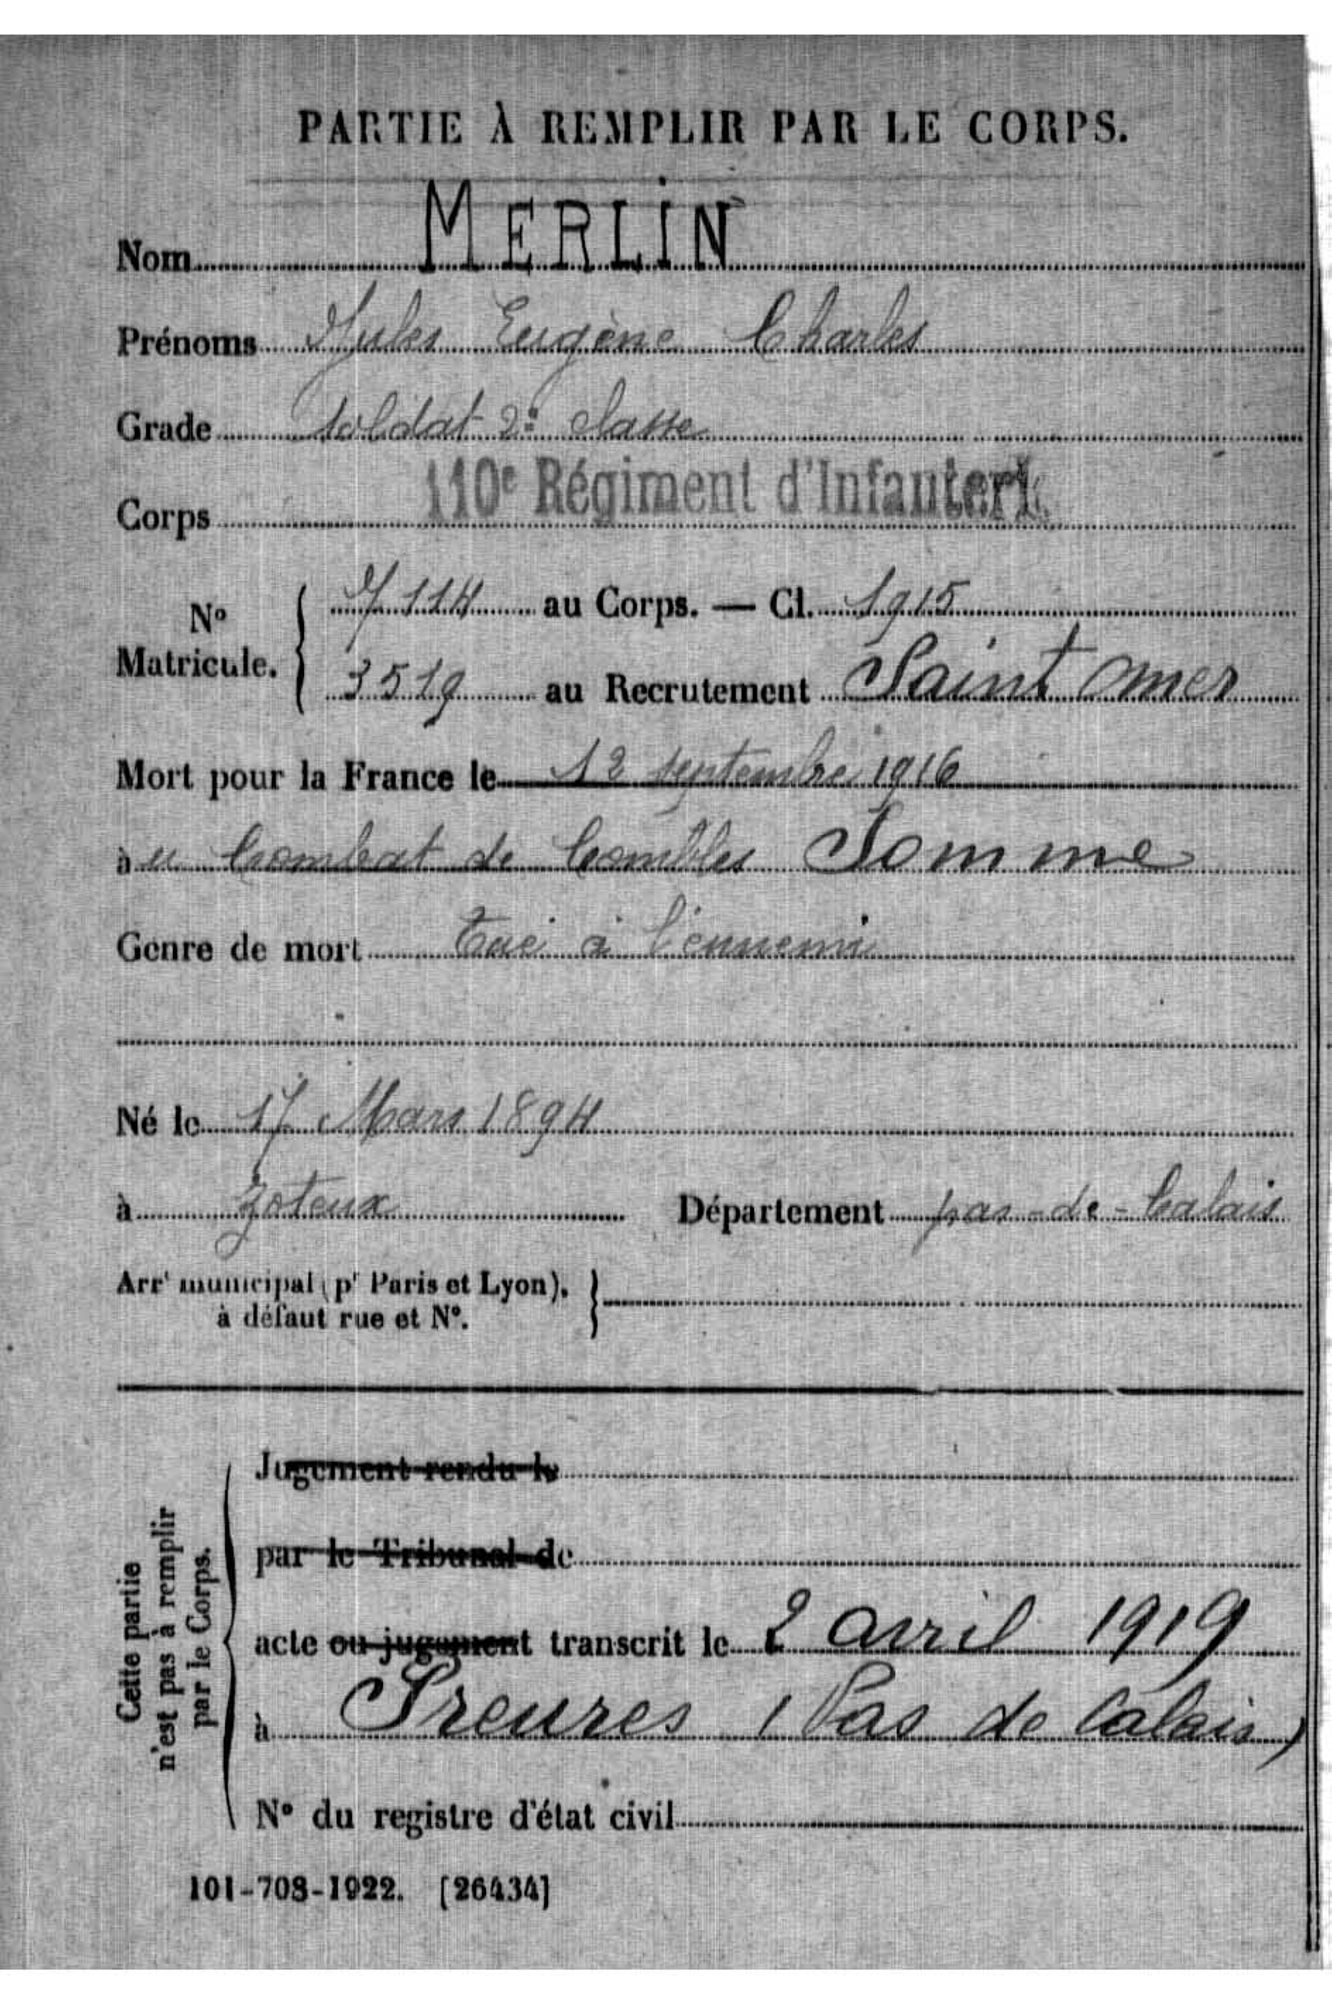 PARTIE À REMPLIR PAR LE CORPS.
Nom MERLIN
Prénoms Jules Eugène Charles
Grade soldat 2e classe
Corps 110e Régiment d'Infanterie
No Matricule. 7114 au Corps. — Cl. 1915
3519 au Recrutement Saint Omer
Mort pour la France le 12 septembre 1916
au Combat de Combles Somme
Genre de mort Tué à l'ennemi
Né le 17 Mars 1894
à Zoteux Département pas-de-Calais
Arrt municipal (pr Paris et Lyon),
à défaut rue et N°.
Cette partie
n'est pas à remplir
par le Corps.
Jugement rendu le
par le Tribunal de
acte ou jugement transcrit le 2 avril 1919
à Preures (Pas de Calais)
N° du registre d'état civil
101-708-1922. [26434]